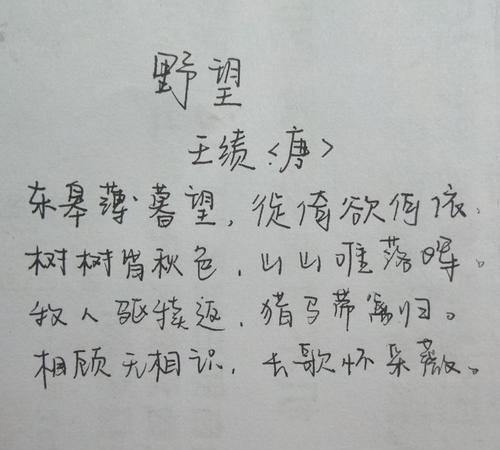 野望
王绩<唐>
东皋薄暮望，徙倚欲何依.
树树皆秋色，山山唯落晖。
牧人驱犊返，猎马带禽归。
相顾无相识，长歌怀采薇。